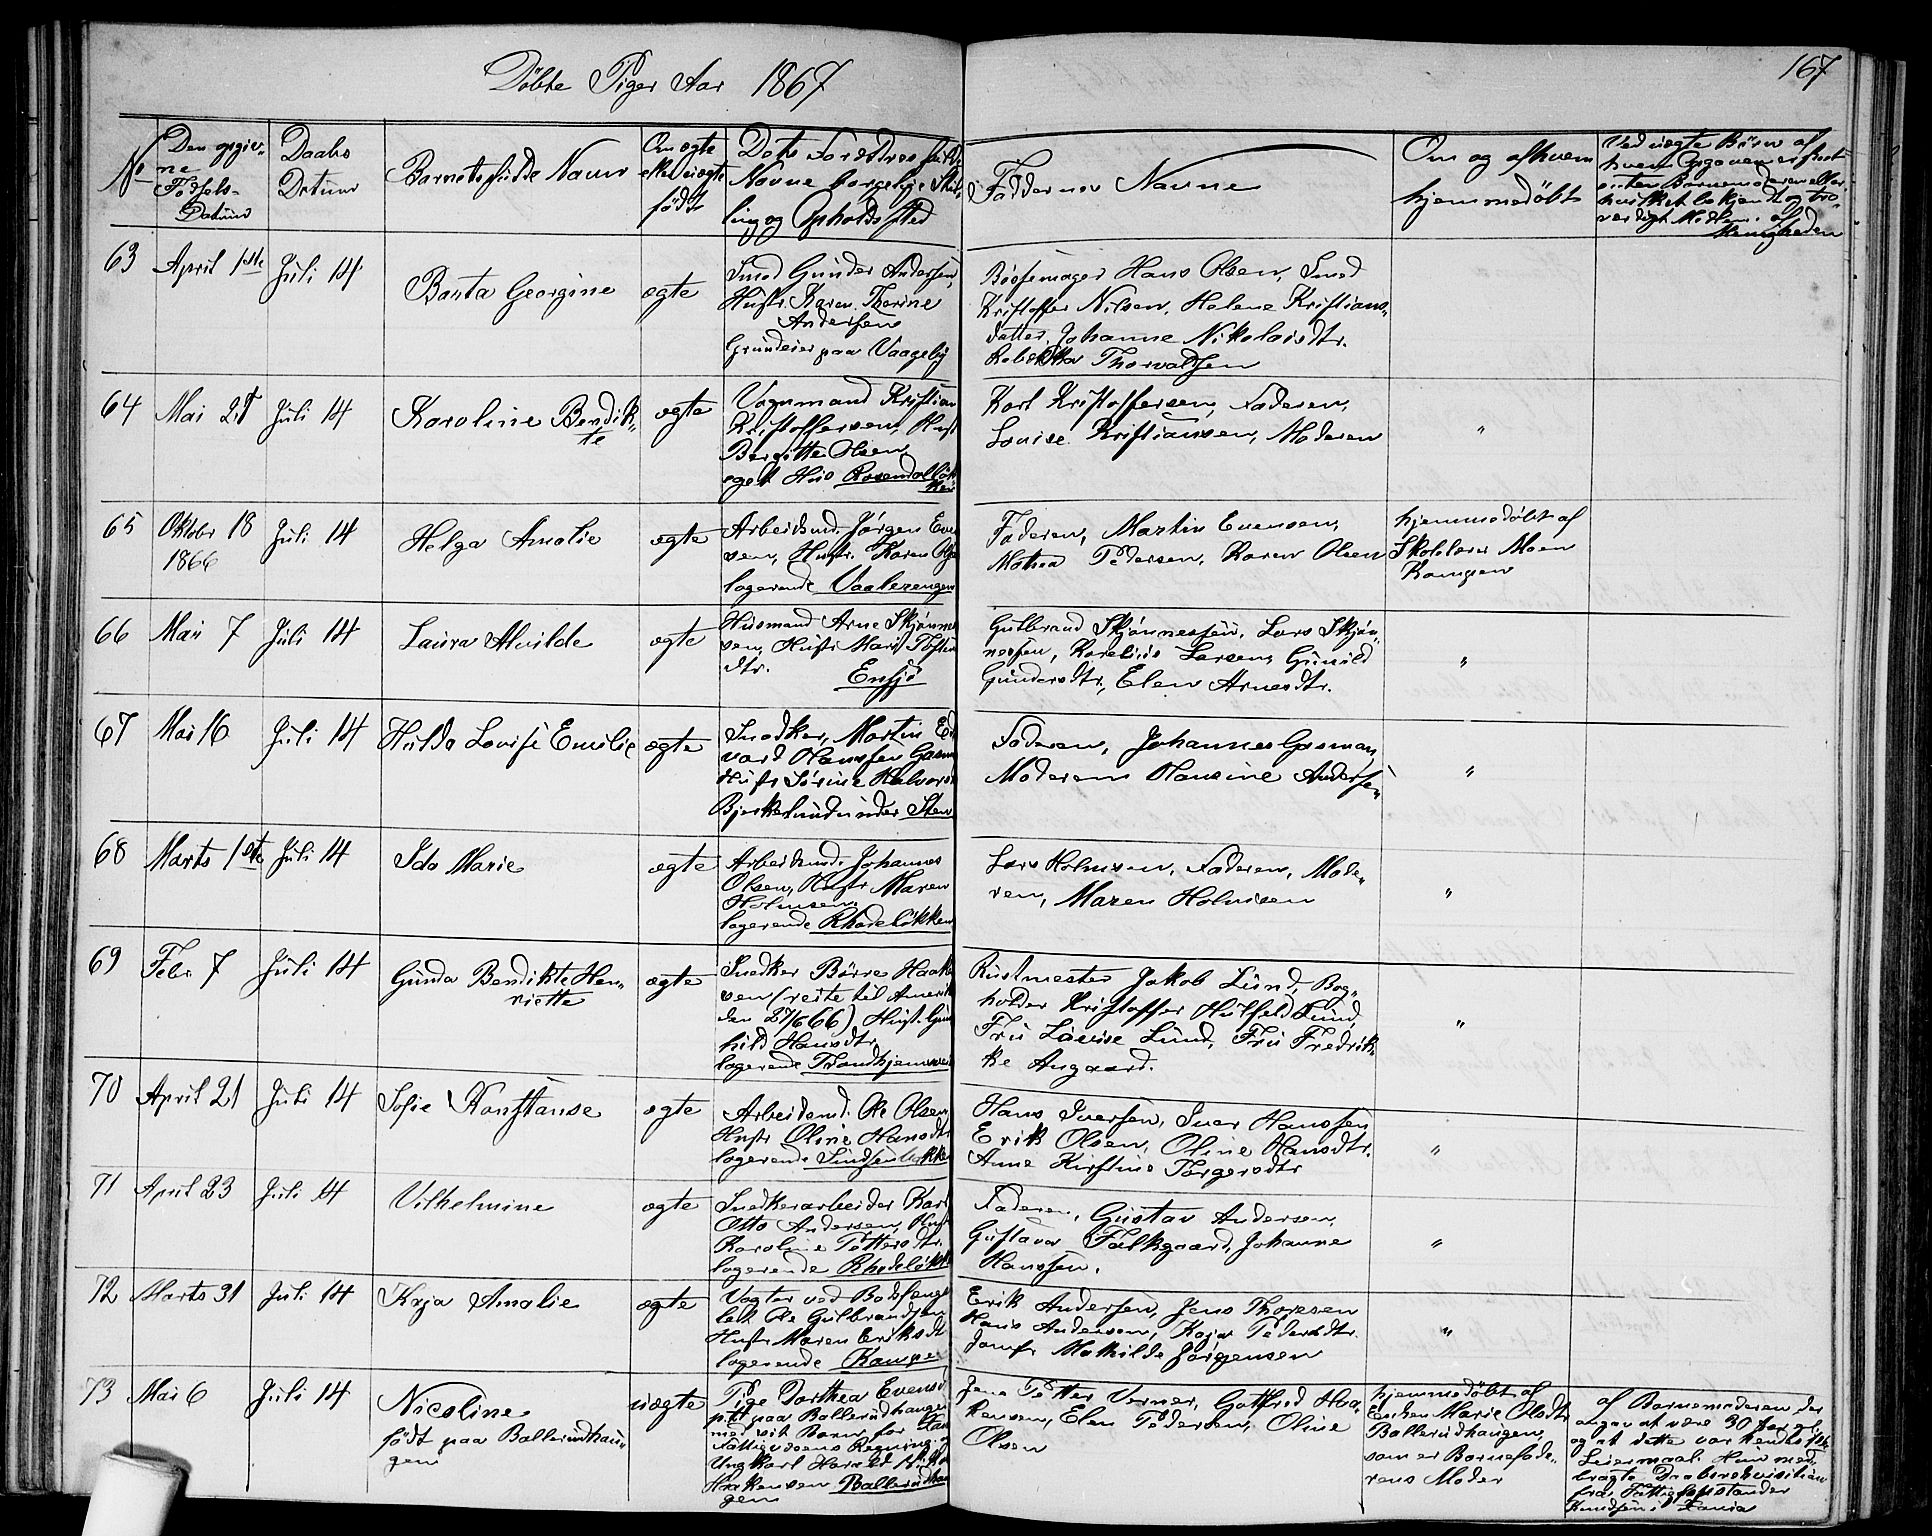 Døbte Piger Aar 1867
167
No
Den opgiv-
ne
Fødsels-
Datum
Daabs
Datum
Barnets fulde Navn
Om ægte
eller uægte
født
Dets Forældres fulde
Navne borgelige Stil-
ling og Opholdssted
Faddernes Navne
Om og af hvem
hjemmedøbt
Ved uægte Børn af
hvem Opgaven er skeet
enten Barnemoderen eller
hvilket bekjendt og tro-
værdigt Medlem af
Menigheden
63 April 1ste Juli 14
Georgine
ægte
Smed Gunder Andersen,
Hustr. Karen Thorine
Andersen
Grundeier paa Vaageby
Bøssemager Hans Olsen, Smed
Kristoffer Nilsen, Helene Kristians-
datter, Johanne Nikolaisdtr.
Thorvaldsen
64 Mai Juli 14
Karoline Bendik-
te
ægte
Vognmand Kristian
Kristoffersen, Hust
Bergitte Olsen
eget Hus Rosendalløk
ken
Karl Kristoffersen, Faderen,
Lovise Kristiansen, Moderen
"
65 Oktober 18
1866
Juli 14
Helga Amalie
ægte
Arbeidsmd. Jørgen Even
sen, Hustr. Karen
logerende Vaalerengen
Faderen, Martin Evensen,
Mathea Pedersen, Karen Olsen
hjemmedøbt af
Skolelærer Moen
Kampen
66 Mai 7 Juli 14
Laura Alvilde
ægte
Husmand Arne Skjønne
sen, Hustr Mari
dtr.
Ensjø
Gulbrand Skjønnessen, Lars Skjøn-
nessen, Karelius Larsen, Gunild
Gundersdtr., Elen Arnesdtr.
"
67 Mai 16 Juli 14
Hulda Lovise Emilie
ægte
Snedker, Martin Ed
vard Hanssen
Hustr Sørine Halvors
Bjerkelund under Sten
Faderen, Johannes Gasman
Moderen Hansine Anderse-
"
68 Marts 1ste Juli 14
Ida Marie
ægte
Arbeidsmd. Johannes
Olsen, Hustr Maren
Holmsen
logerende Rhodeløkken
Lars Holmsen, Faderen, Mode-
ren, Maren Holmsen
"
69 Febr 7 Juli 14
Gunda Bendikte Hen-
riette
ægte
Snedker Børre Haak
sen (reiste til Amerik
den 27/6 66) Hust. Gun
hild Hansdtr
logerende Trondhjemsvei
Rustmester Jakob Lund, Bog-
holder Kristoffer Hulfeld Lund,
Fru Lovise Lund, Fru Fredrik-
ke Augaard.
"
70 April 21 Juli 14
Sofie Konstanse
ægte
Arbeidsmd. Ole Olsen
Hustr Oline Hansdtr
logerende
Hans Iversen, Iver Hanssen
Erik Olsen, Oline Hansdtr.
Anne Kirstine Torgersdtr
"
71 April 23 Juli 14
Vilhelmine
ægte
Snedkerarbeider Karl
Otto Andersen, Hust
Karoline Pettersdtr.
logerende Rhodeløkk
Faderen, Gustav Andersen,
Gustava Falkgaard, Johanne
Hanssen.
"
72 Marts 31 Juli 14
Kaja Amalie
ægte
Vogter ved Bodsfæng
let Ole Gulbrandsen
Hustr Maren Eriksdt
logerende Kampe
Erik Andersen, Jens Thoresen
Hans Andersen, Kaja Pedersdtr.
Jomfr Mathilde Jørgensen
"
73 Mai 6 Juli 14
Nicoline
født paa Ballerudhau-
gen
uægte
Pige Dorthea Evensd
paa Ballerudhaugen
med sit Barn for
Fattigvæsens Regning og
Ungkarl Harald
Haakensen Ballerudhau
gen
Jens Petter Verner, Gotfred Haa-
kensen, Elen Pedersen, Oline
Olsen
hjemmedøbt af
Marie Olsdtr
Ballerudhaugen
som er Barnefade-
rens Moder
af Barnemoderen der
angav at være 30 Aar gl.
og at dette var hendes 1ste
Leiermaal. Hun med-
bragte Daabsrekvisition
fra Fattigforstander
Knudsen i